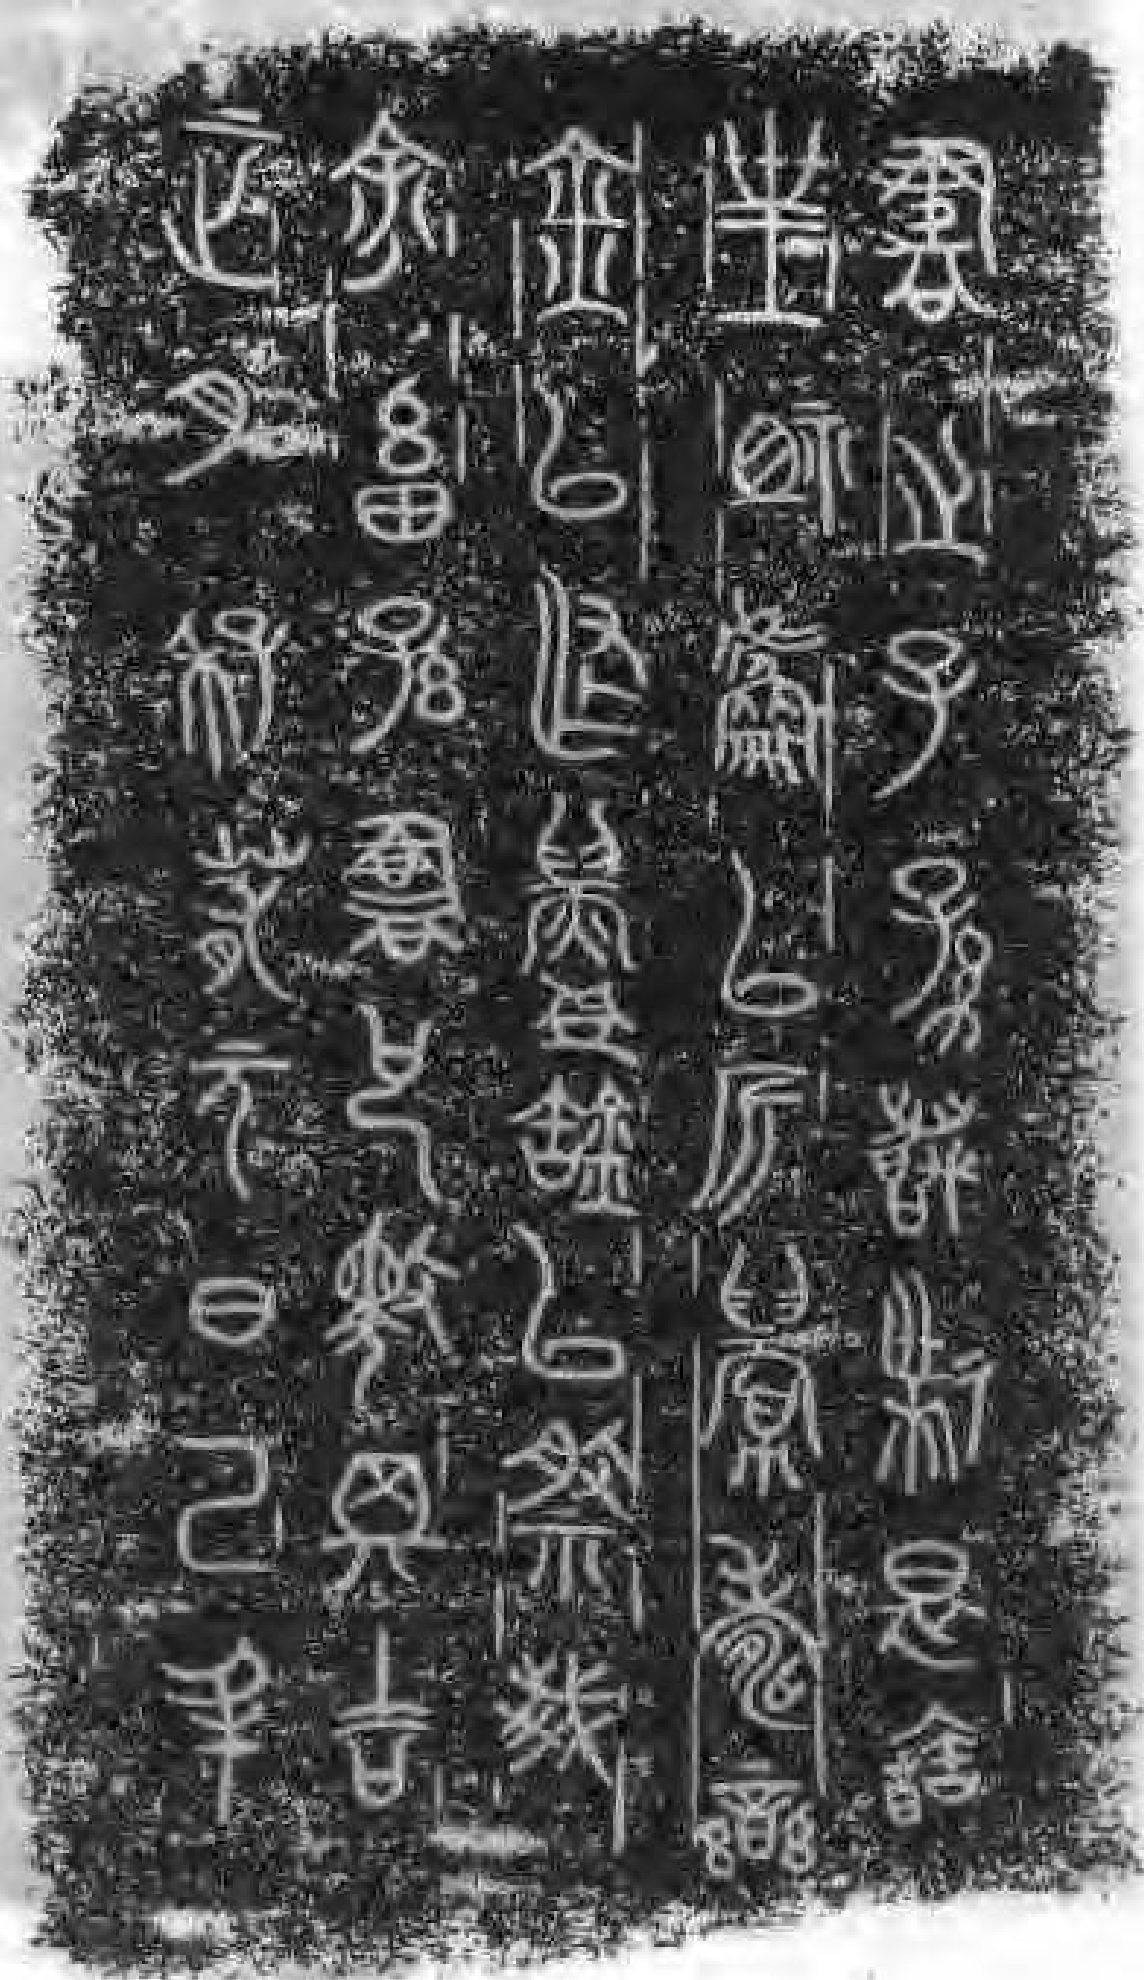 正月季春元日己丑
余畜孫書已擇其吉
金以作鑄缶以祭我
皇祖虘以祈眉壽欒
書之子孫萬世是寶